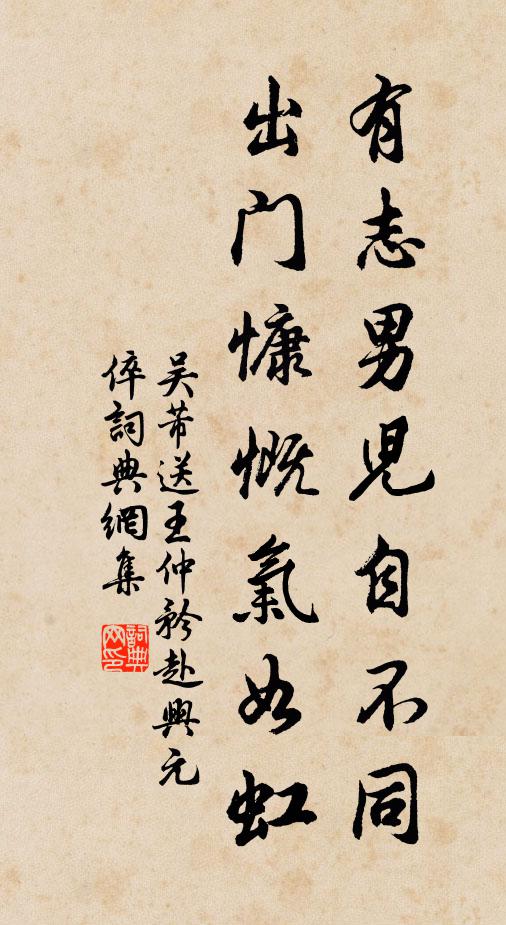 有志男児自不同
出门慷慨氣如虹
吴芾送王仲矜赴興元
倅詞典網集
詞典网印